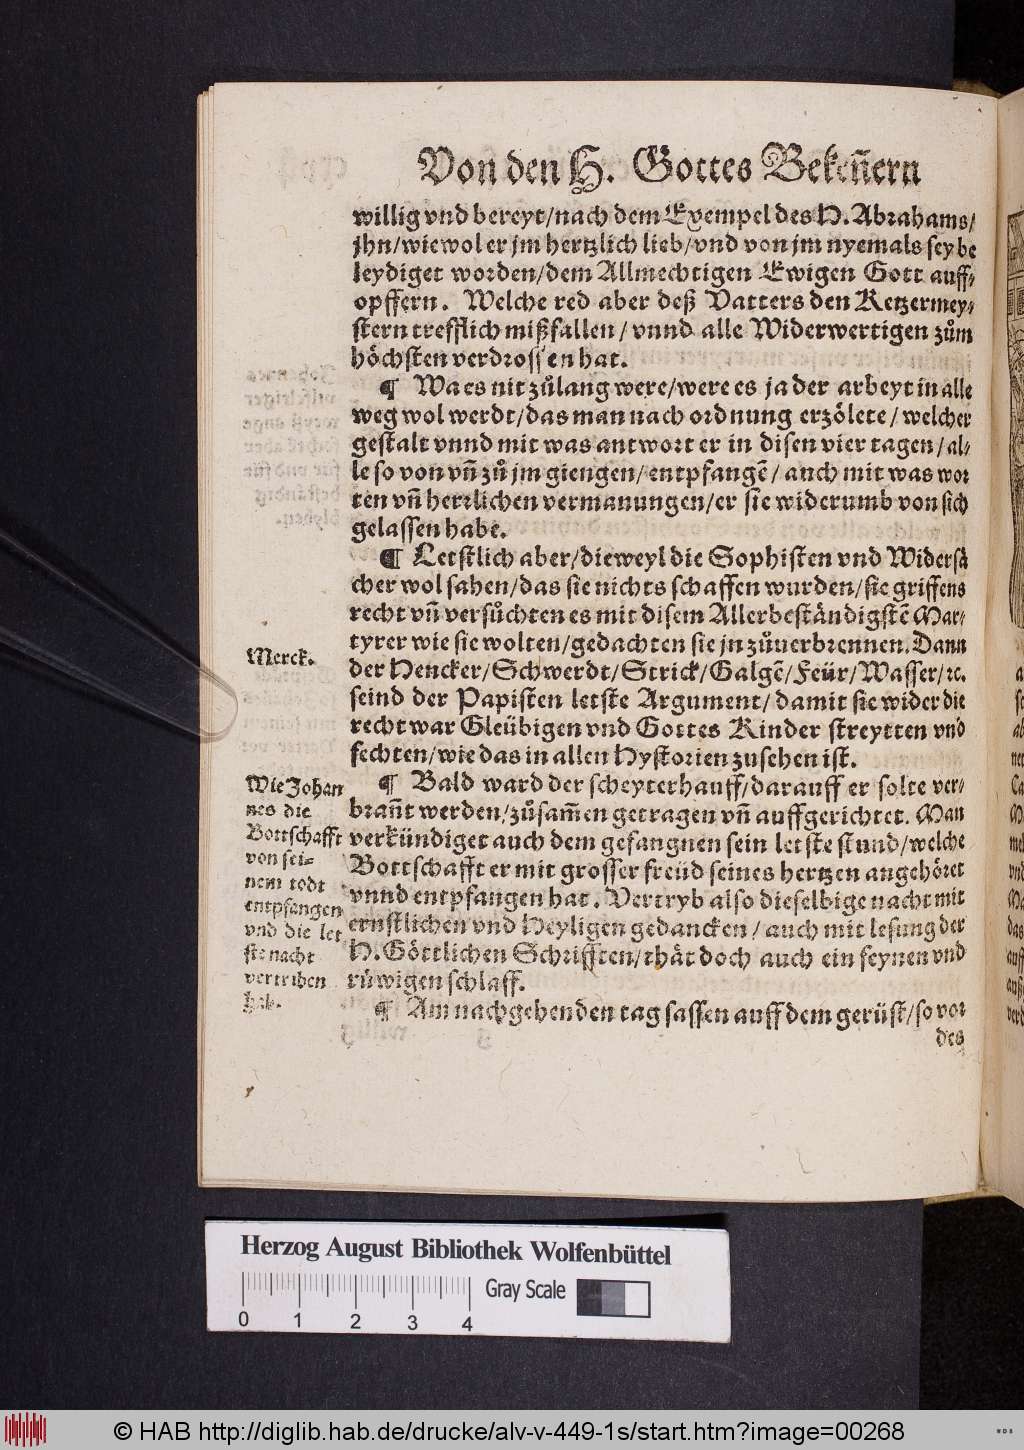 Von den H. Gottes Bekeñern
willig vnd bereyt/nach dem Exempel des H. Abrahams/
jhn/wiewol er jm hertzlich lieb/vnd von jm nyemals sey be
leydiget worden/dem Allmechtigen Ewigen Gott auff-
opffern. Welche red aber deß Vatters den Ketzermey-
stern trefflich mißfallen/ vnnd alle Widerwertigen zům
höchsten verdrossen hat.
¶ Wa es nit zůlang were/were es ja der arbeyt in alle
weg wol werdt/das man nach ordnung erzölete/ welcher
gestalt vnnd mit was antwort er in disen vier tagen/al-
le so von vñ zů jm giengen/entpfangẽ/ auch mit was wor
ten vñ herrlichen vermanungen/er sie widerumb von sich
gelassen habe.
¶ Letstlich aber/dieweyl die Sophisten vnd Widersä
cher wol sahen/das sie nichts schaffen wurden/sie griffens
recht vñ versůchten es mit disem Allerbeständigstẽ Mar-
tyrer wie sie wolten/gedachten sie jn zůuerbrennen. Dann
der Hencker/Schwerdt/Strick/Galgẽ/Feür/Wasser/ꝛc.
seind der Papisten letste Argument/damit sie wider die
recht war Gleübigen vnd Gottes Kinder streytten vnd
fechten/wie das in allen Hystorien zusehen ist.
¶ Bald ward der scheyterhauff/darauff er solte ver-
brañt werden/zůsam̃en getragen vñ auffgerichtet. Man
verkündiget auch dem gefangnen sein letste stund/welche
Bottschafft er mit grosser freüd seines hertzen angehöret
vnnd entpfangen hat. Vertryb also dieselbige nacht mit
ernstlichen vnd Heyligen gedancken/ auch mit lesung der
H. Göttlichen Schrifften/thät doch auch ein feynen vnd
růwigen schlaff.
¶ Am nachgehenden tag sassen auff dem gerüst/so vor
des
Merck.
Wie Johan
nes die
Bottschafft
von sei=
nem todt
entpfangen
vnd die let
ste nacht
vertriben
hab.
Herzog August Bibliothek Wolfenbüttel
Gray Scale
0 1 2 3 4
© HAB http://diglib.hab.de/drucke/alv-v-449-1s/start.htm?image=00268